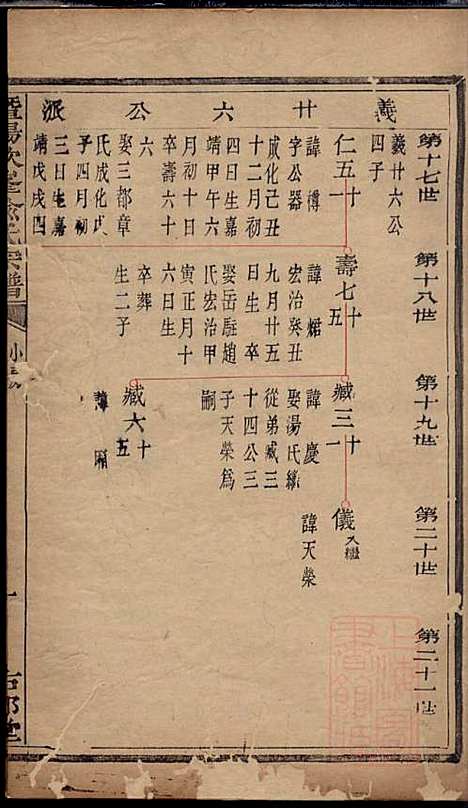 義廿六公派
第十七世
第十八世
第十九世
第二十世
第二十一世
義廿六公
四子
仁五十一
諱樽
字公器
成化己丑
十二月初
四日生嘉
靖甲午六
月初十日
卒壽六十
六
娶三都章
氏成化戊
子四月初
三日生嘉
靖戊戌四
壽七十五
諱焜
宏治癸丑
九月廿五
日生 卒
娶岳駐趙
氏宏治甲
寅正月十
六日生
卒葬
生二子
臧三十一
諱慶
娶湯氏繼
從弟臧三
十四公三
子天榮爲
嗣
臧六十五
諱
儀入繼
諱天榮
宗譜